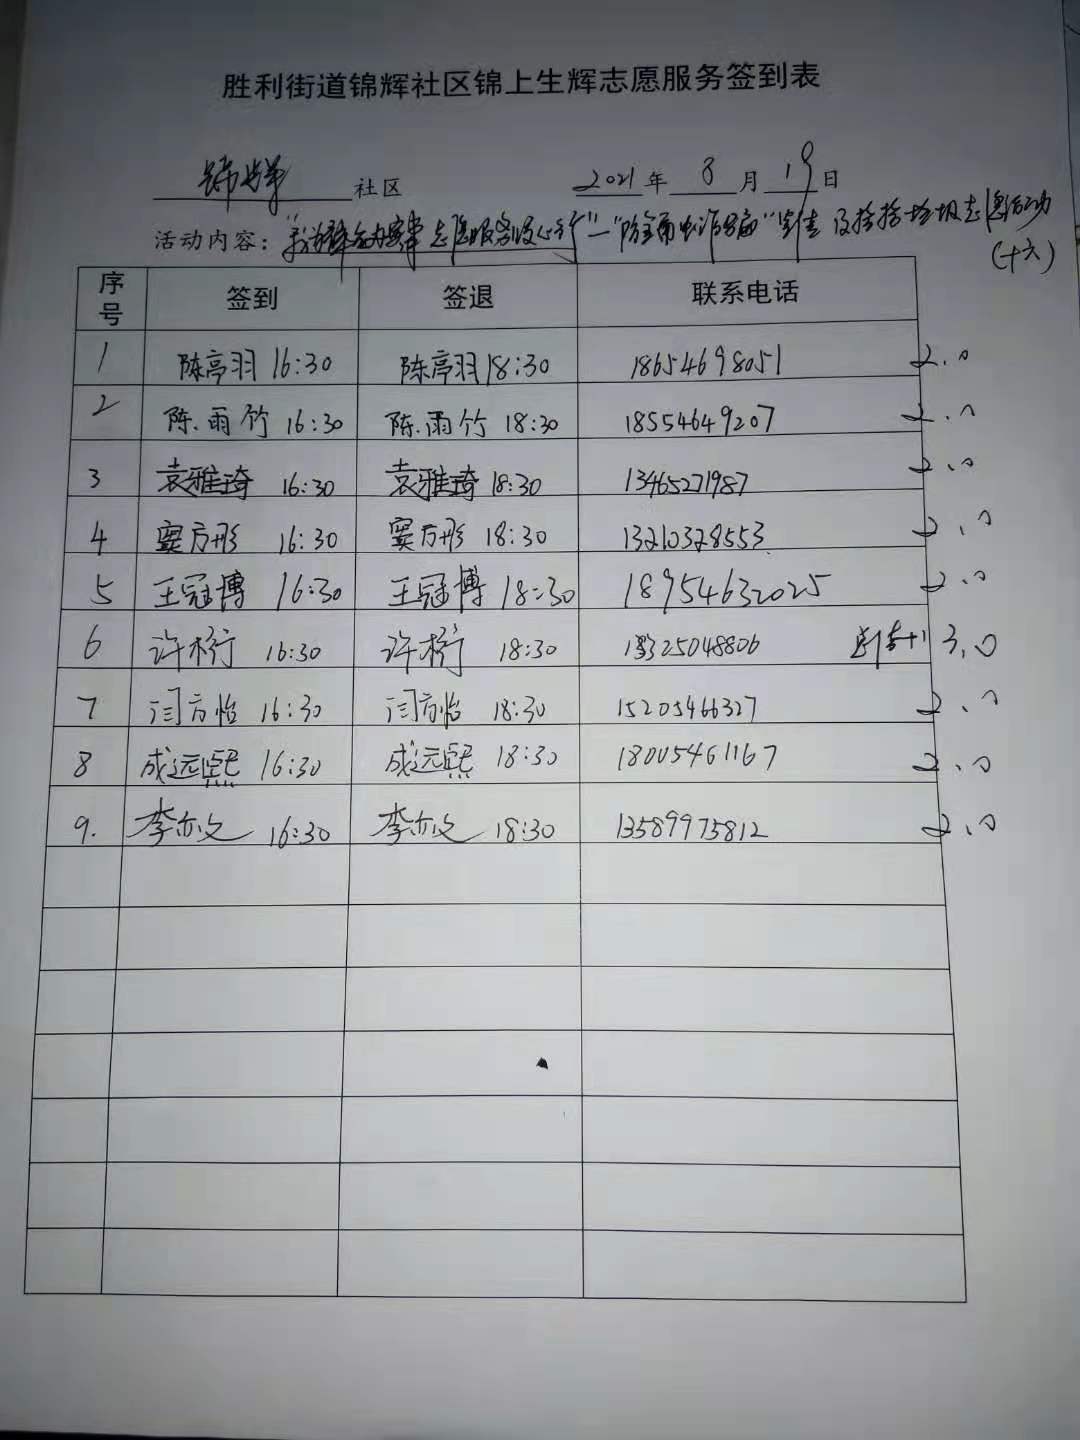 胜利街道锦辉社区锦上生辉志愿服务签到表
锦辉 社区 2021 年 8 月 19 日
活动内容："我为群众办实事 志愿服务暖心行"—"防金融电诈骗"宣传 及捡拾垃圾志愿活动
(十六)
序号 签到 签退 联系电话
1 陈亭羽 16:30 陈亭羽 18:30 18654698051 2.0
2 陈雨竹 16:30 陈雨竹 18:30 18554649207 2.0
3 袁雅琦 16:30 袁雅琦 18:30 13465271987 2.0
4 窦方彤 16:30 窦方彤 18:30 13210328553 2.0
5 王冠博 16:30 王冠博 18:30 18954632025 2.0
6 许桁 16:30 许桁 18:30 25048806 +1 3.0
7 闫方怡 16:30 闫方怡 18:30 15205466327 2.0
8 成远熙 16:30 成远熙 18:30 18005461167 2.0
9. 李亦文 16:30 李亦文 18:30 13589975812 2.0